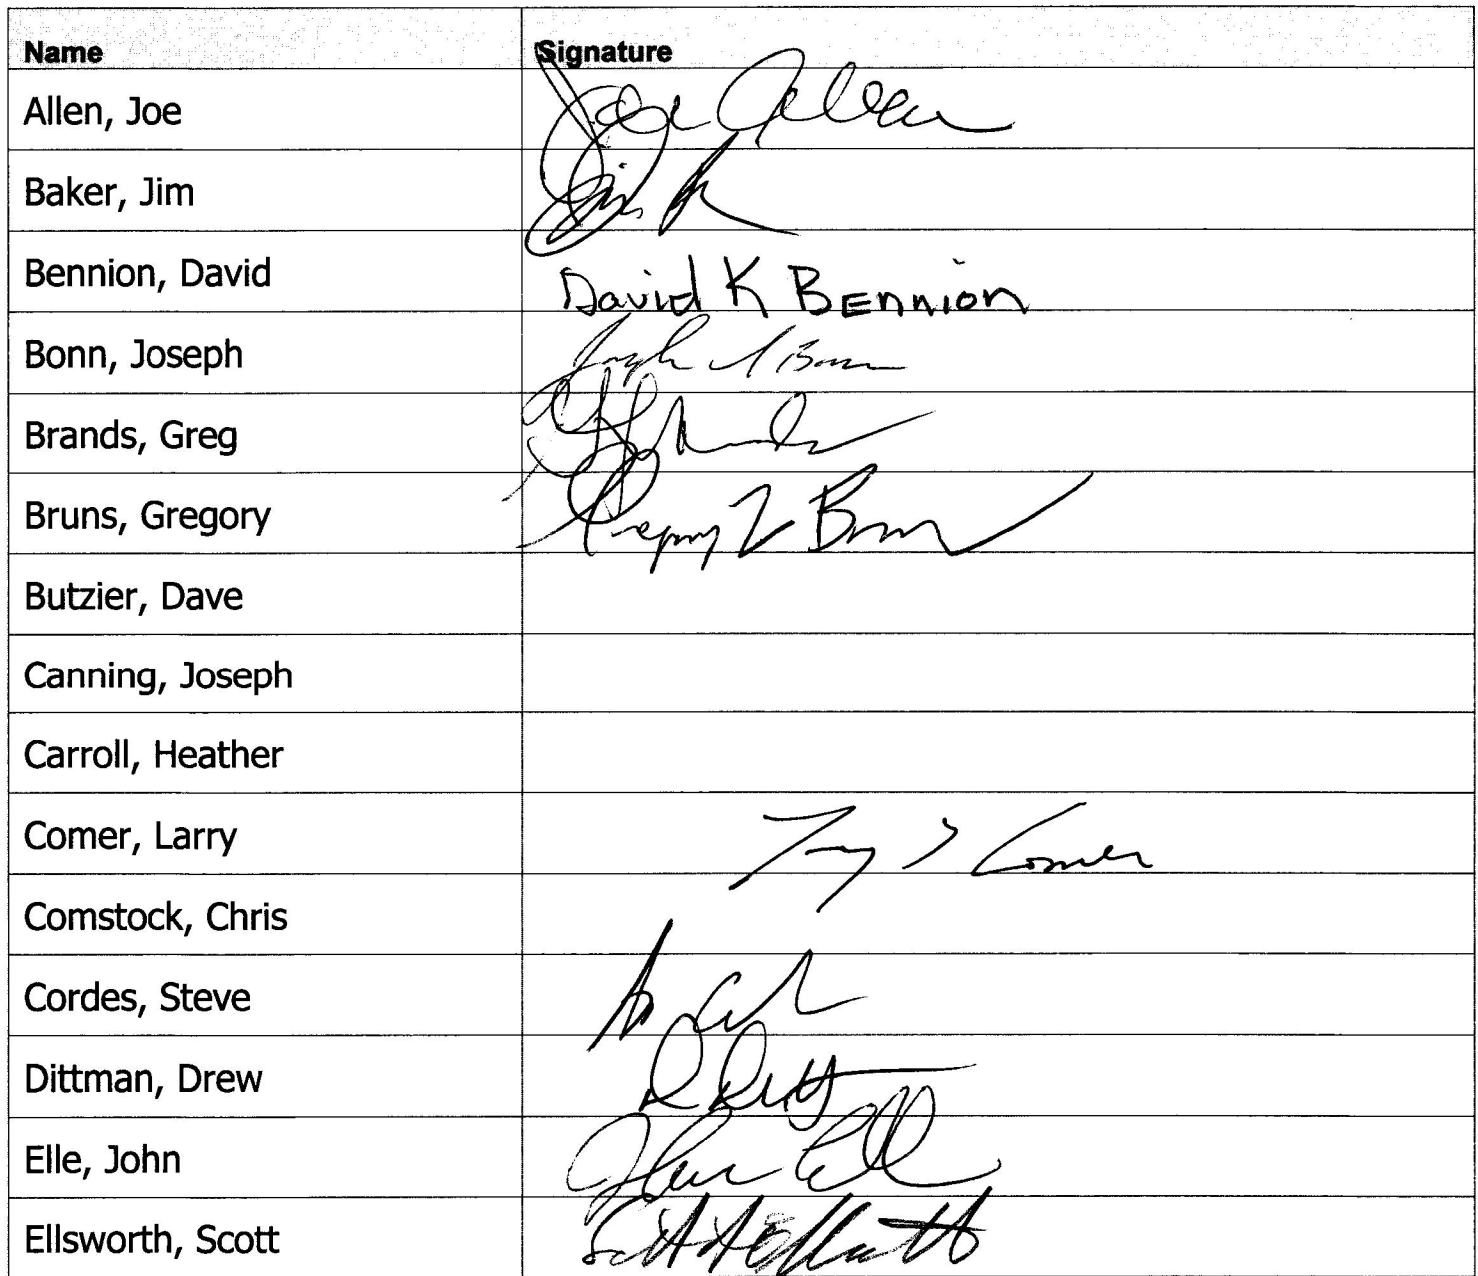 Name Signature
Allen, Joe Joe Allen
Baker, Jim Jim
Bennion, David David K Bennion
Bonn, Joseph Joseph Bonn
Brands, Greg
Bruns, Gregory Gregory Bruns
Butzier, Dave
Canning, Joseph
Carroll, Heather
Comer, Larry Comer
Comstock, Chris
Cordes, Steve
Dittman, Drew D Ditt
Elle, John John Elle
Ellsworth, Scott Scott